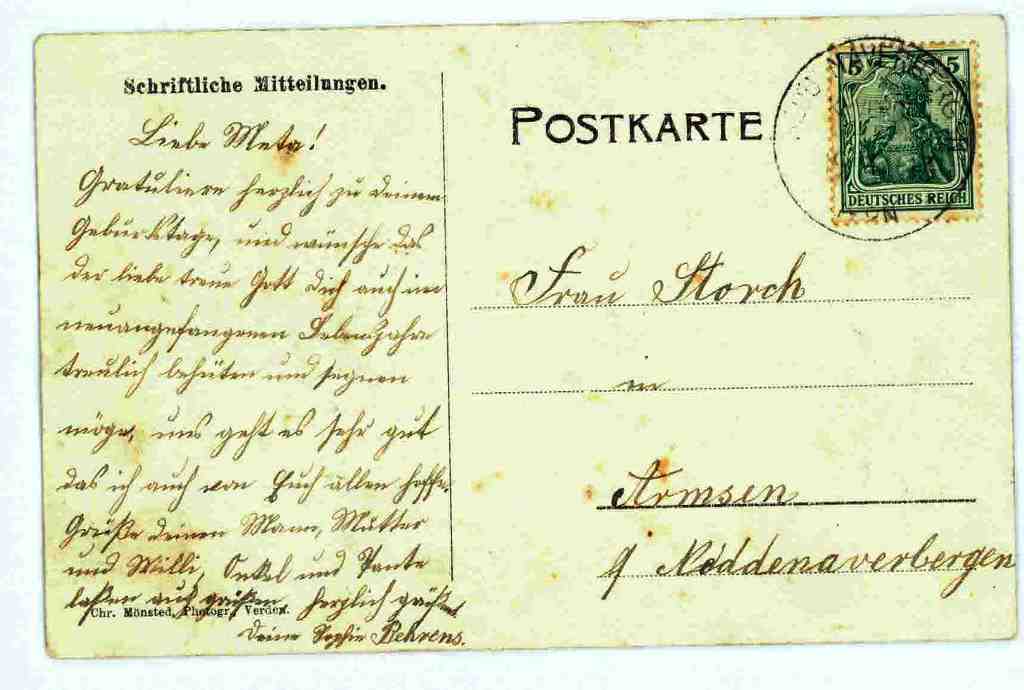 Schriftliche Mitteilungen.
Liebe Meta!
Gratuliere herzlich zu deinem
Geburtstage, und wünsche das
der liebe treue Gott dich auch im
neuangefangenen Lebensjahre
treulich behüten und segnen
möge, uns geht es sehr gut
das ich auch von Euch allen hoffe.
Grüße deinen Mann, Mutter
und Willi, Onkel und Tante
laßen auch grüßen, herzlich grüßt
Deine Sophie Behrens.
Chr. Mönsted, Photogr., Verden.
POSTKARTE
5 5
DEUTSCHES REICH
Frau Storch
in
Armsen
Neddenaverbergen